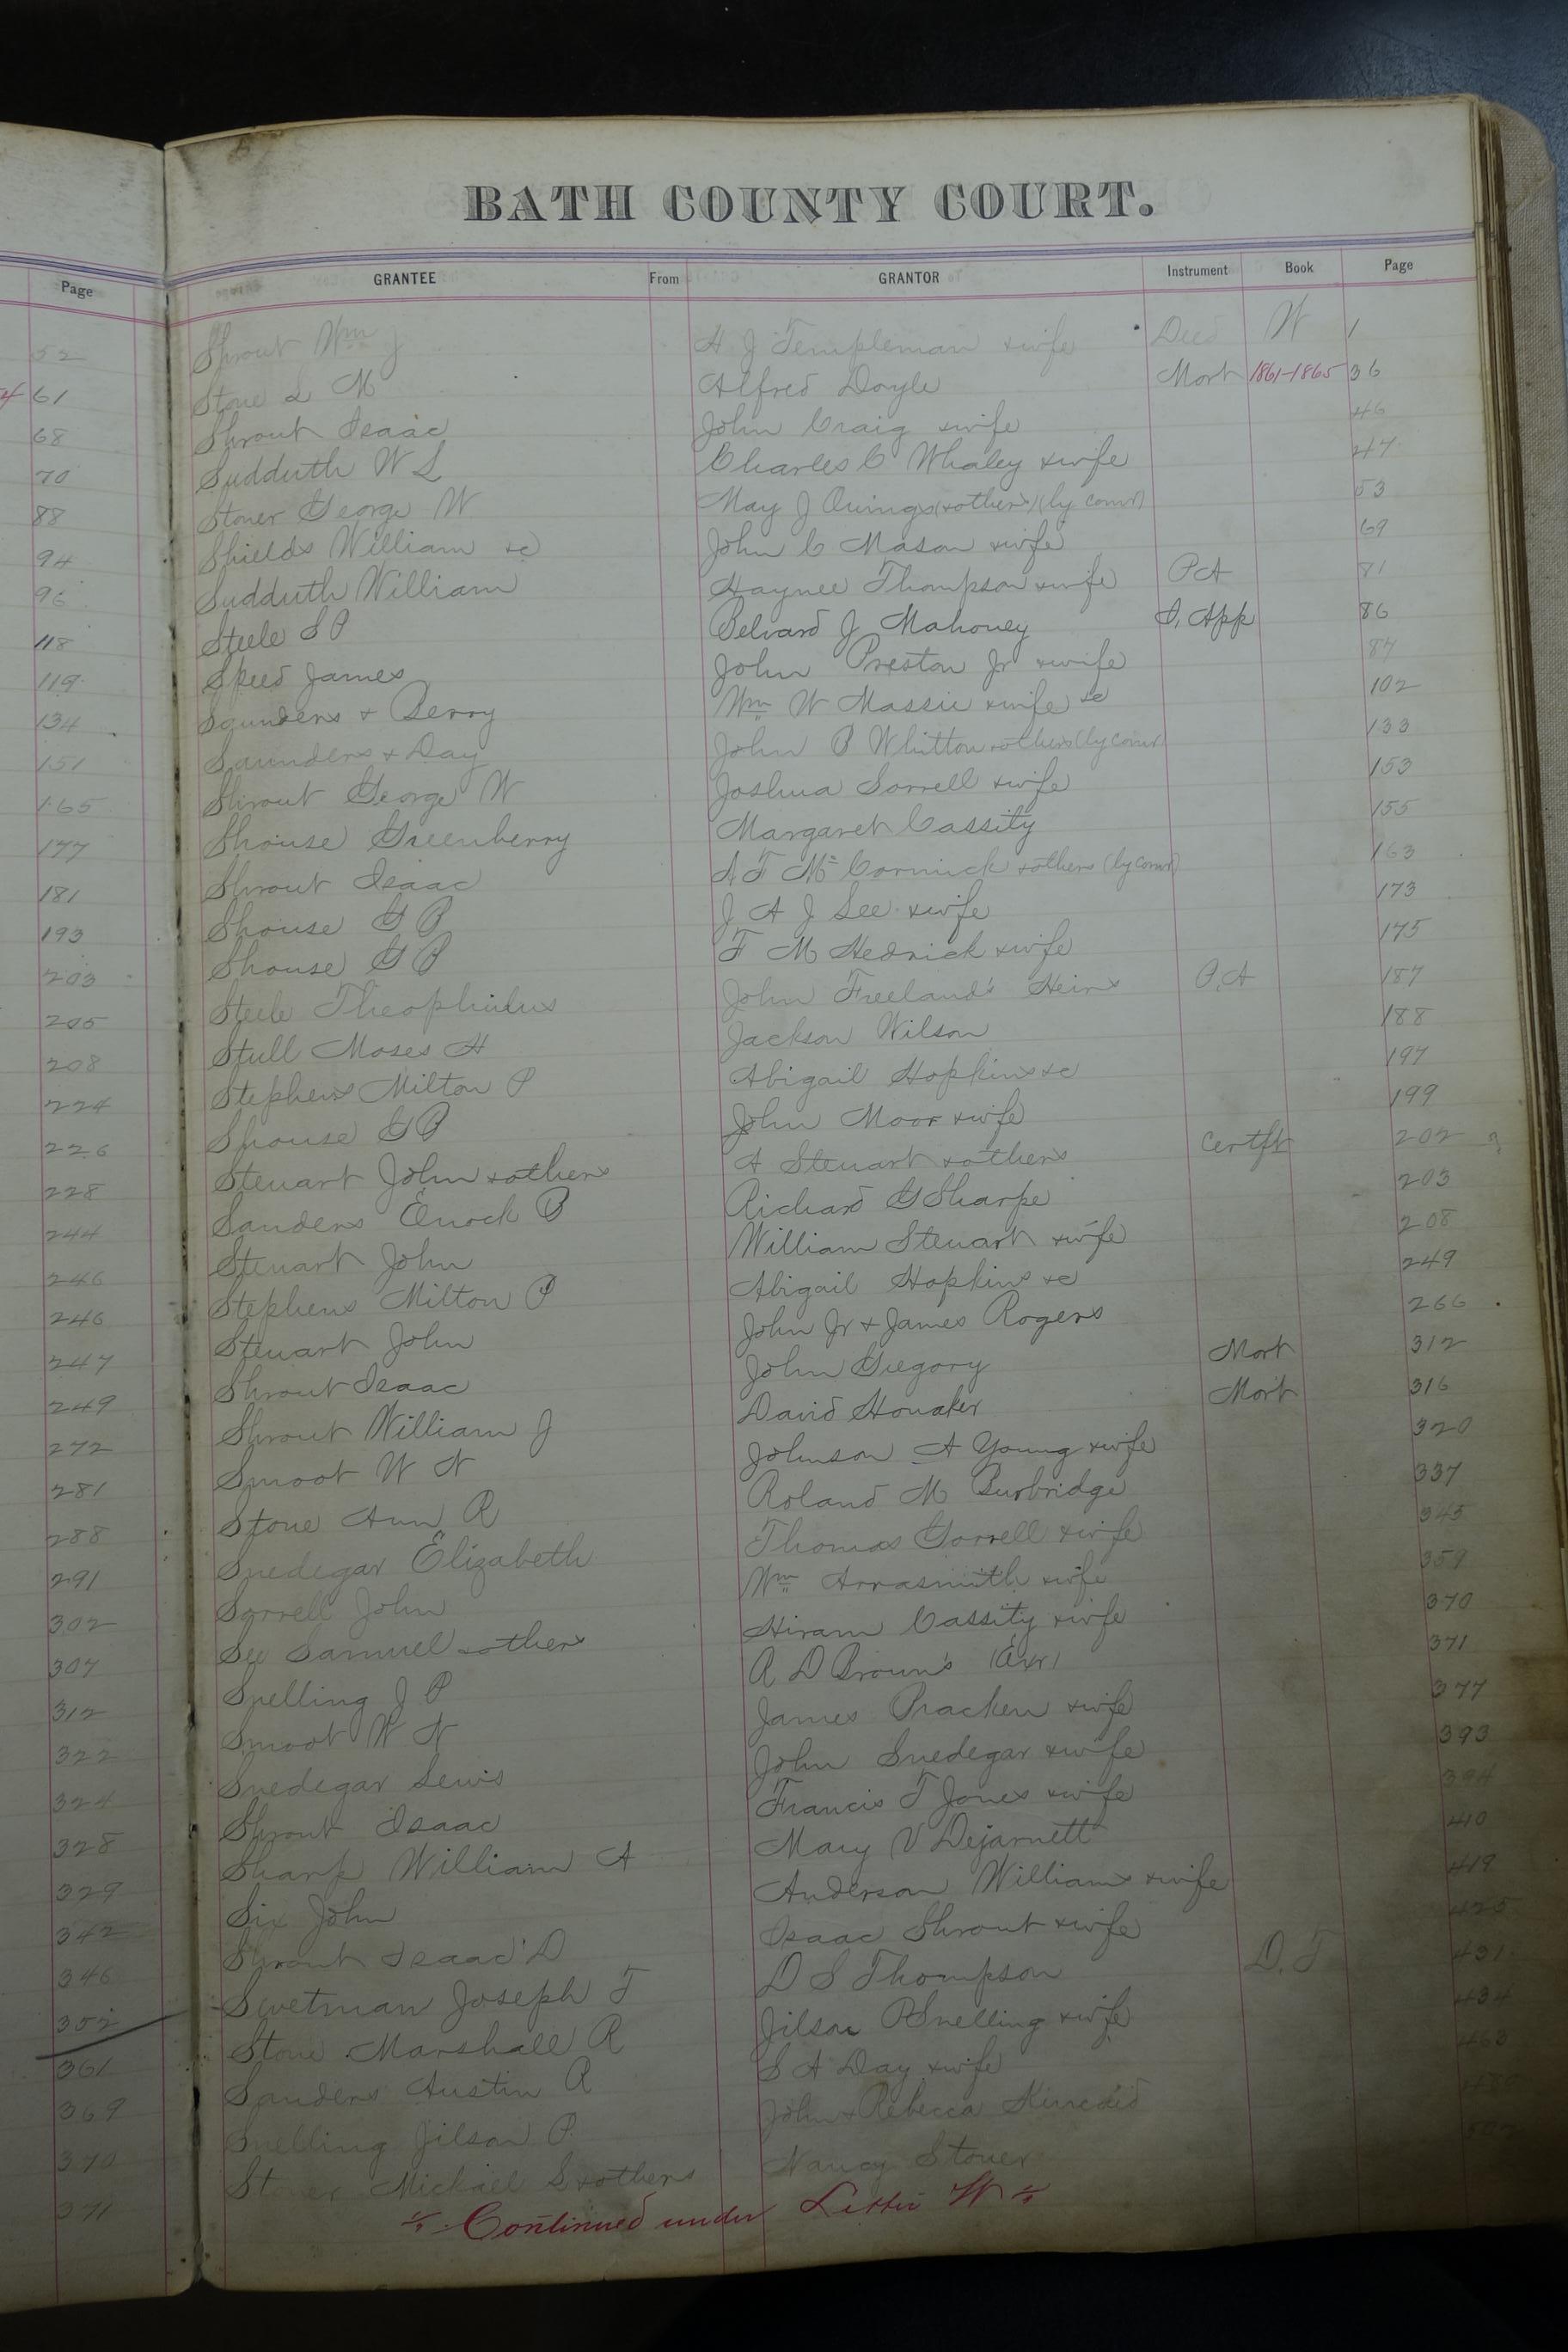 BATH COUNTY COURT.
Page GRANTEE From GRANTOR Instrument Book Page
52 Shrout Wm J H J Templeman & wife Deed W 1
61 Stone L M Alfred Doyle Mort 1861-1865 36
68 Shrout Isaac John Craig & wife 46
70 Sudduth W L Charles C Whaley & wife 47
88 Stoner George W May J Owings (& others) (by comr) 53
94 Shields William &c John C Mason & wife 69
96 Sudduth William Haynee Thompson & wife P A 81
118 Steele S P Belvard J Mahoney S. App 86
119 Speed James John Preston Jr & wife 87
134 Saunders & Berry Wm W Massie & wife &c 102
151 Saunders & Day John P Whitton & others (by comr) 133
165 Shrout George W Joshua Sorrell & wife 153
177 Shouse Greenberry Margaret Cassity 155
181 Shrout Isaac A F McCormick & others (by comr) 163
193 Shouse G B J A J See & wife 173
203 Shouse G B F M Hedrick & wife 175
205 Steele Theophilus John Freeland's Heirs P. A 187
208 Stull Moses H Jackson Wilson 188
224 Stephens Milton P Abigail Hopkins &c 197
226 Shouse G B John Moor & wife 199
228 Steuart John & others A Steuart & others Certft 202
244 Sanders Enock B Richard G Sharpe 203
246 Steuart John William Steuart & wife 208
246 Stephens Milton P Abigail Hopkins &c 249
247 Steuart John John Jr & James Rogers 266
249 Shrout Isaac John Gregory Mort 312
272 Shrout William J David Honaker Mort 316
281 Smoot W N Johnson A Young & wife 320
288 Stone Ann R Roland M Burbridge 337
291 Snedegar Elizabeth Thomas Gorrell & wife 345
302 Sorrell John Wm Arrasmith & wife 359
307 See Samuel & others Hiram Cassity & wife 370
312 Snelling J P R D Brown's (Exr) 371
322 Smoot W N James Bracken & wife 377
324 Snedegar Lewis John Snedegar & wife 393
328 Shrout Isaac Francis T Jones & wife 394
329 Sharp William A Mary V Dejarnett 410
342 Six John Anderson Williams & wife 419
346 Shrout Isaac D Isaac Shrout & wife 425
352 Swetman Joseph F D S Thompson D. T 431
361 Stone Marshall R Jilson P Snelling & wife 434
369 Sanders Austin R S A Day & wife 463
370 Snelling Jilson P John & Rebecca Kincaid
371 Mickael S & others Nancy Stoner
Continued under Letter W